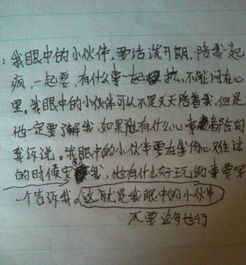 :我眼中的小伙伴,要活泼开朗,陪我起
疯,一起耍,有什么事一起扛,不能闷在心
里,我眼中的小伙伴可以不是天天陪着我,但是
他一定要了解我,如果他有什么心事都陪向
我诉说。我眼中的小伙伴要在我伤心难过
的时候安我,他有什么好玩的事要第
一个告诉我。这就是我眼中的小伙伴
不要这身也行